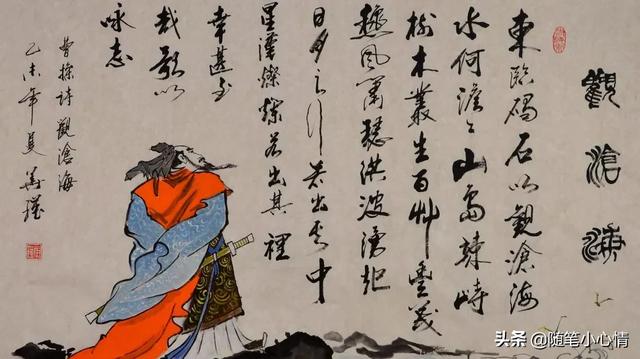 觀滄海
東臨碣石以觀滄海
水何澹々山島竦峙
樹木叢生百艸豐茂
秋風蕭瑟洪波湧起
日月之行若出其中
星漢燦爛若出其裡
幸甚至
哉歌以
咏志
曹操詩觀滄海
乙未年夏
头条 @随笔小心情